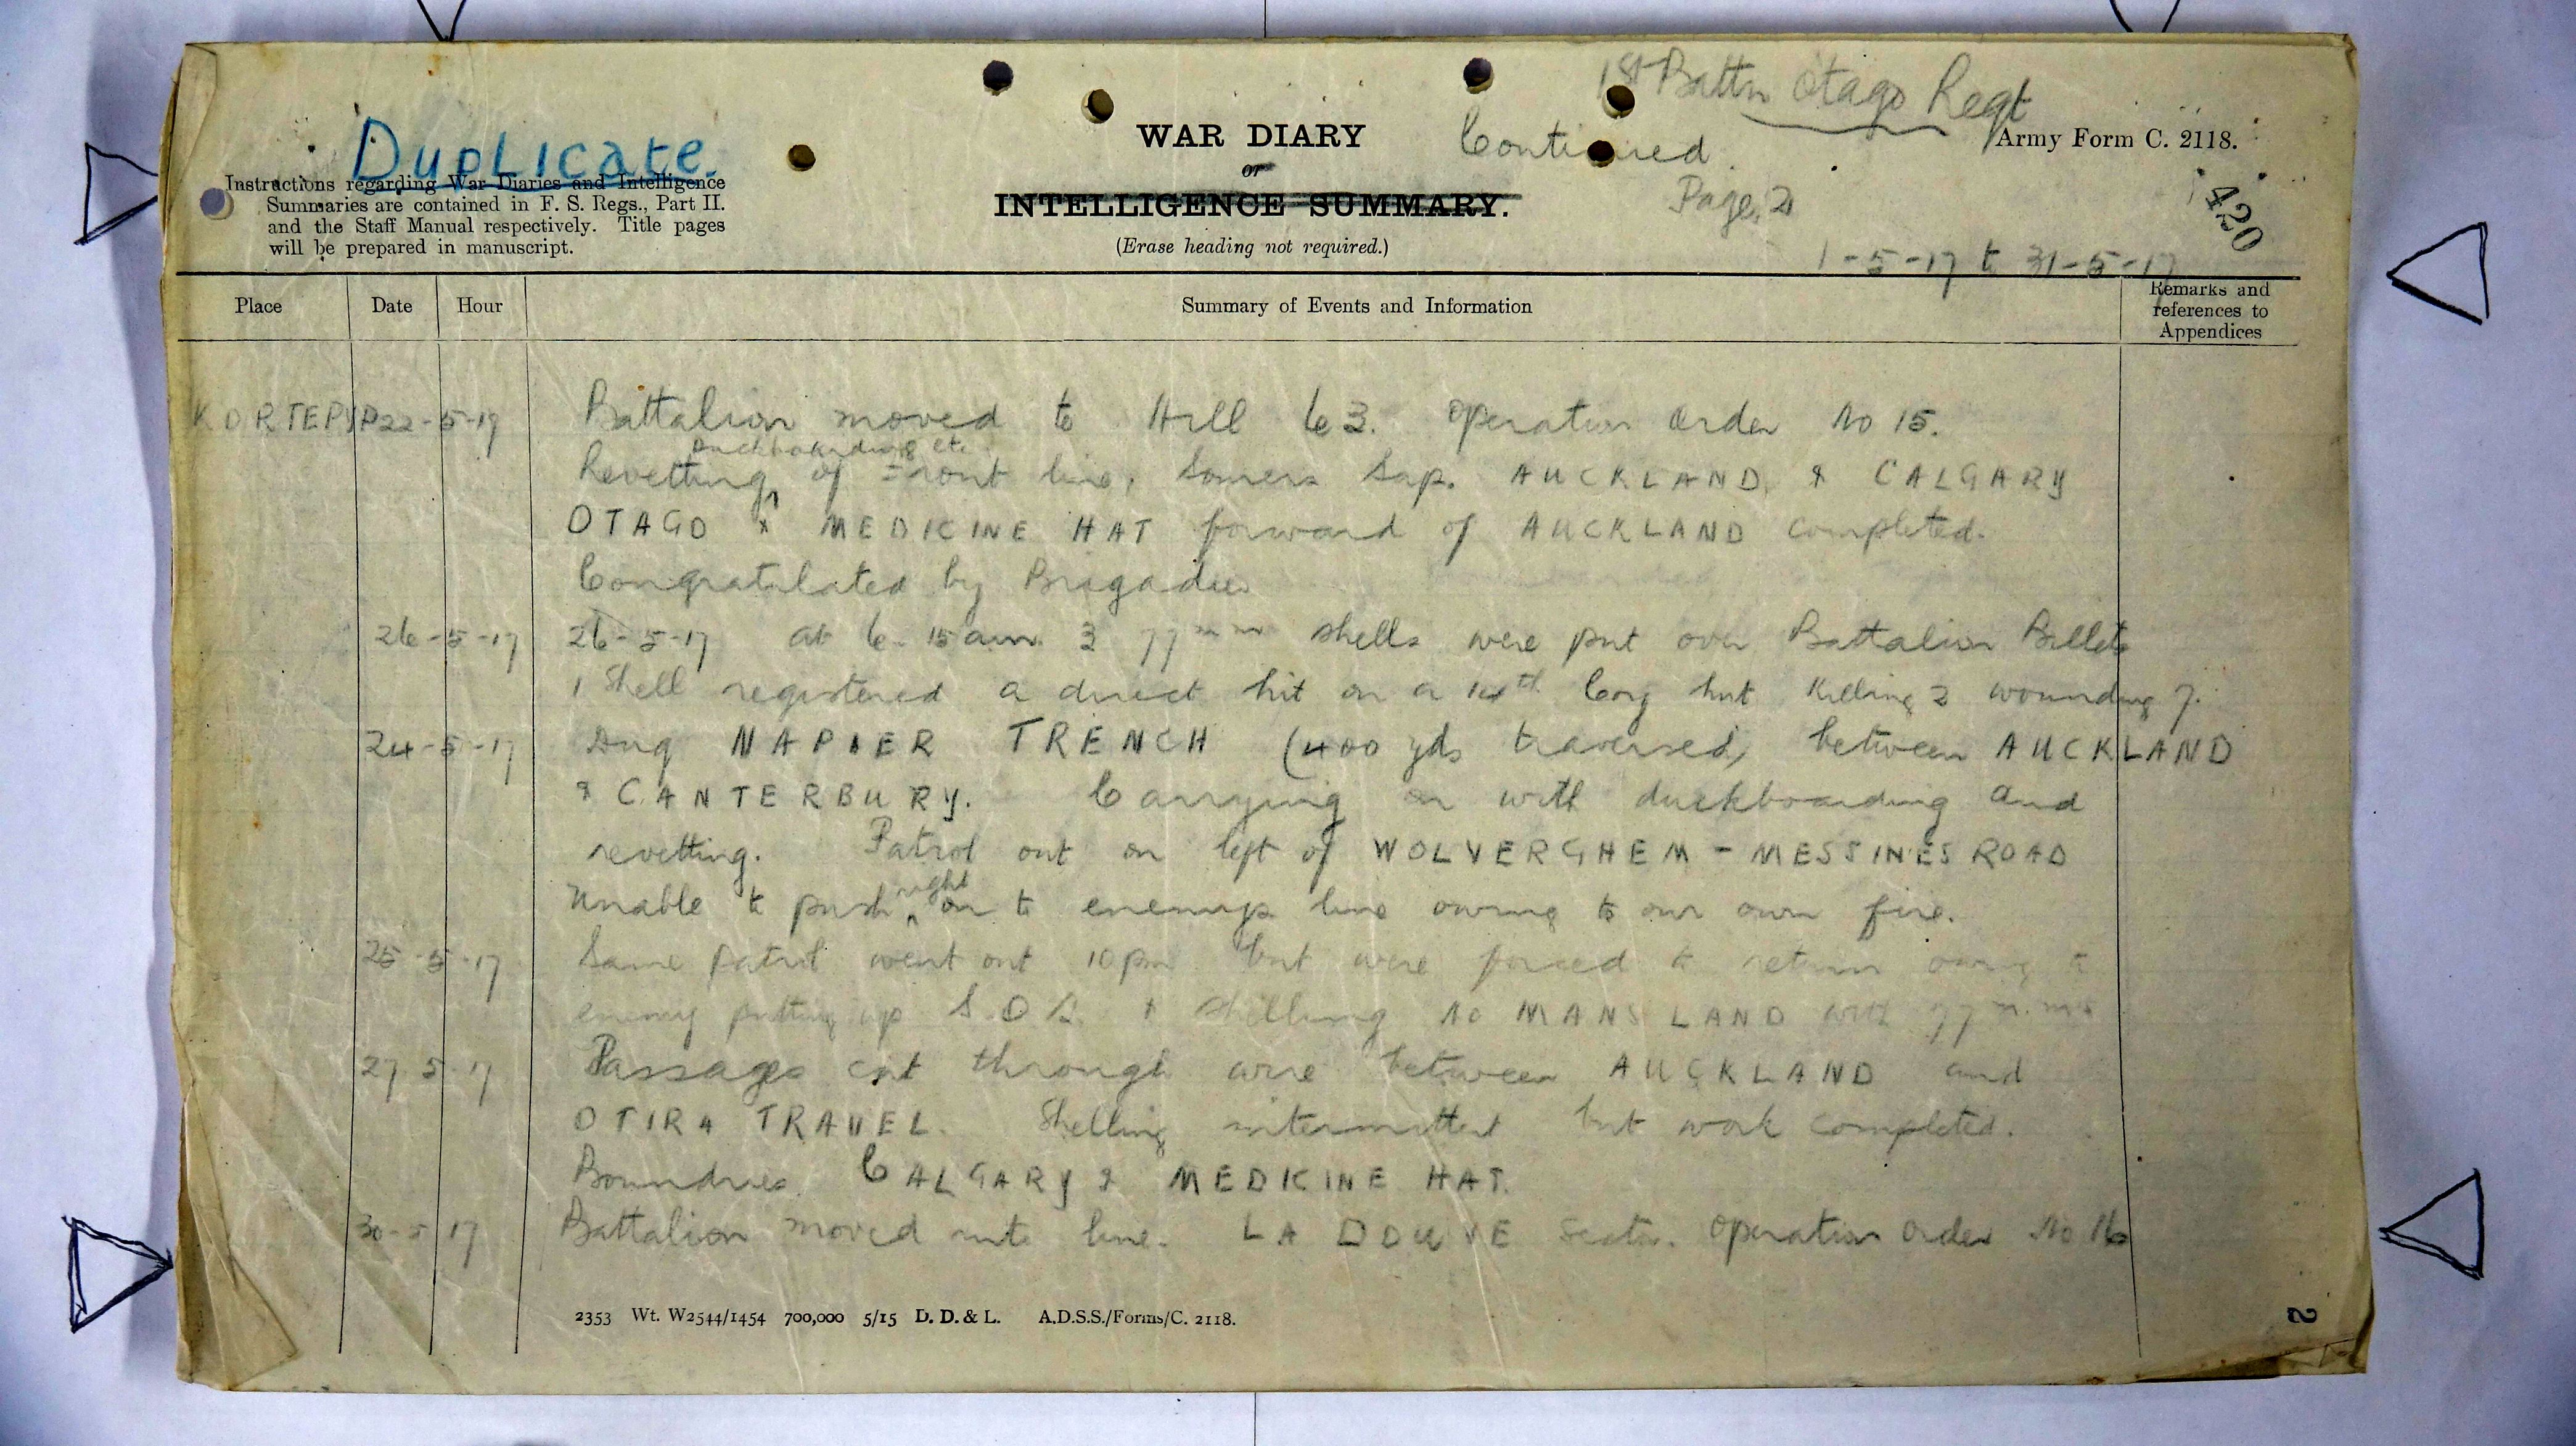 1st Battn Otago Regt
Duplicate.
WAR DIARY
Continued.
Army Form C. 2118.
or
Instructions regarding War Diaries and Intelligence
Summaries are contained in F. S. Regs., Part II.
and the Staff Manual respectively. Title pages
will be prepared in manuscript.
INTELLIGENCE SUMMARY.
Page, 2
420
(Erase heading not required.)
1-5-17 to 31-5-17
Place Date Hour Summary of Events and Information Remarks and references to Appendices
KORTEPYP 22-5-17 Battalion moved to Hill 63. Operation Order No 15.
duckboarding etc
Revetting of Front line, Somers Sap. AUCKLAND & CALGARY
OTAGO & MEDICINE HAT forward of AUCKLAND completed.
Congratulated by Brigadier
26-5-17 26-5-17 at 6-15 am 3 77 mm shells were put over Battalion Billets
1 Shell registered a direct hit on a 14th Coy hut Killing 2 wounding 7.
24-5-17 Dug NAPIER TRENCH (400 yds traversed) between AUCKLAND
& CANTERBURY. Carrying on with duckboarding and
revetting. Patrol out on left of WOLVERGHEM - MESSINES ROAD
right
Unable to push on to enemys line owing to our own fire.
25-5-17 Same patrol went out 10pm but were forced to return owing to
enemy putting up S.O.S. & shelling No MANS LAND with 77 m.ms
27 5-17 Passages cut through wire between AUCKLAND and
OTIRA TRAVEL. Shelling intermittent but work completed.
Boundries CALGARY & MEDICINE HAT.
30-5 17 Battalion moved into line. LA DOUVE Sector. Operation Order No 16
2353 Wt. W2544/1454 700,000 5/15 D. D. & L. A.D.S.S./Forms/C. 2118.
2